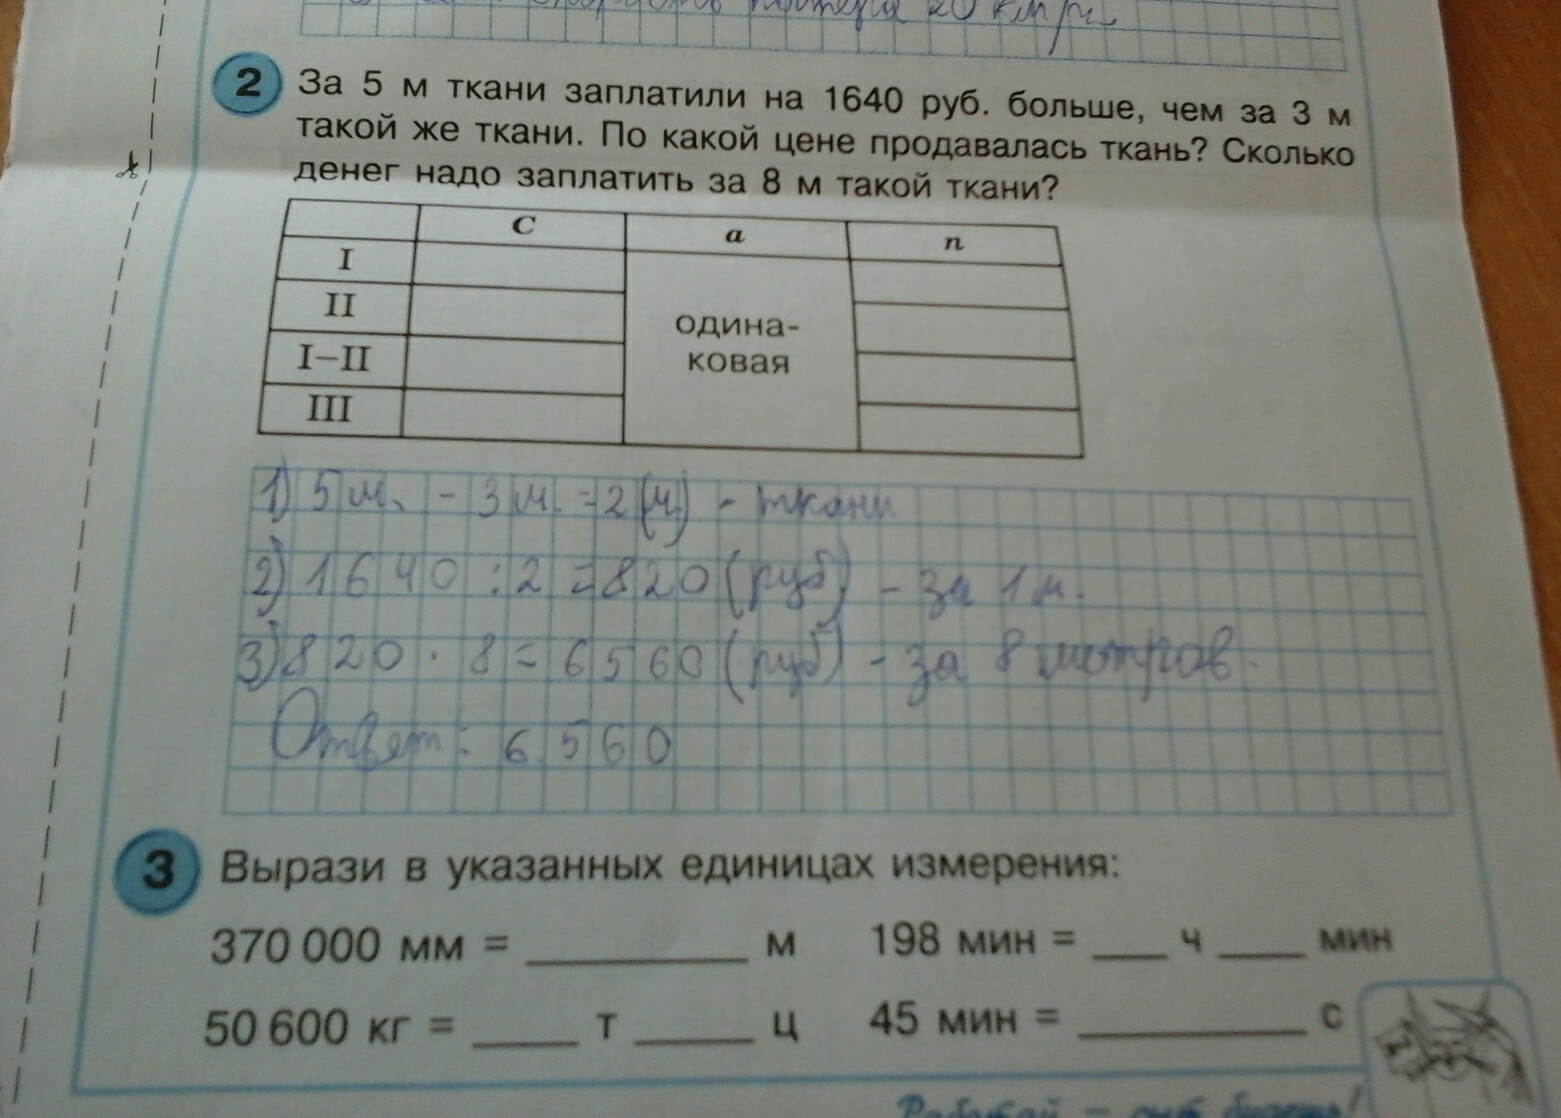 20 км/ч
2 За 5 м ткани заплатили на 1640 руб. больше, чем за 3 м
такой же ткани. По какой цене продавалась ткань? Сколько
денег надо заплатить за 8 м такой ткани?
C a n
I
II
I–II
III
одина-
ковая
1) 5 м. - 3 м. = 2 (м) - ткани
2) 1640 : 2 = 820 (руб) - за 1 м.
3) 820 · 8 = 6560 (руб) - за 8 метров.
Ответ: 6560
3 Вырази в указанных единицах измерения:
370 000 мм = ________ м 198 мин = ___ ч ___ мин
50 600 кг = ____ т ____ ц 45 мин = ________ с